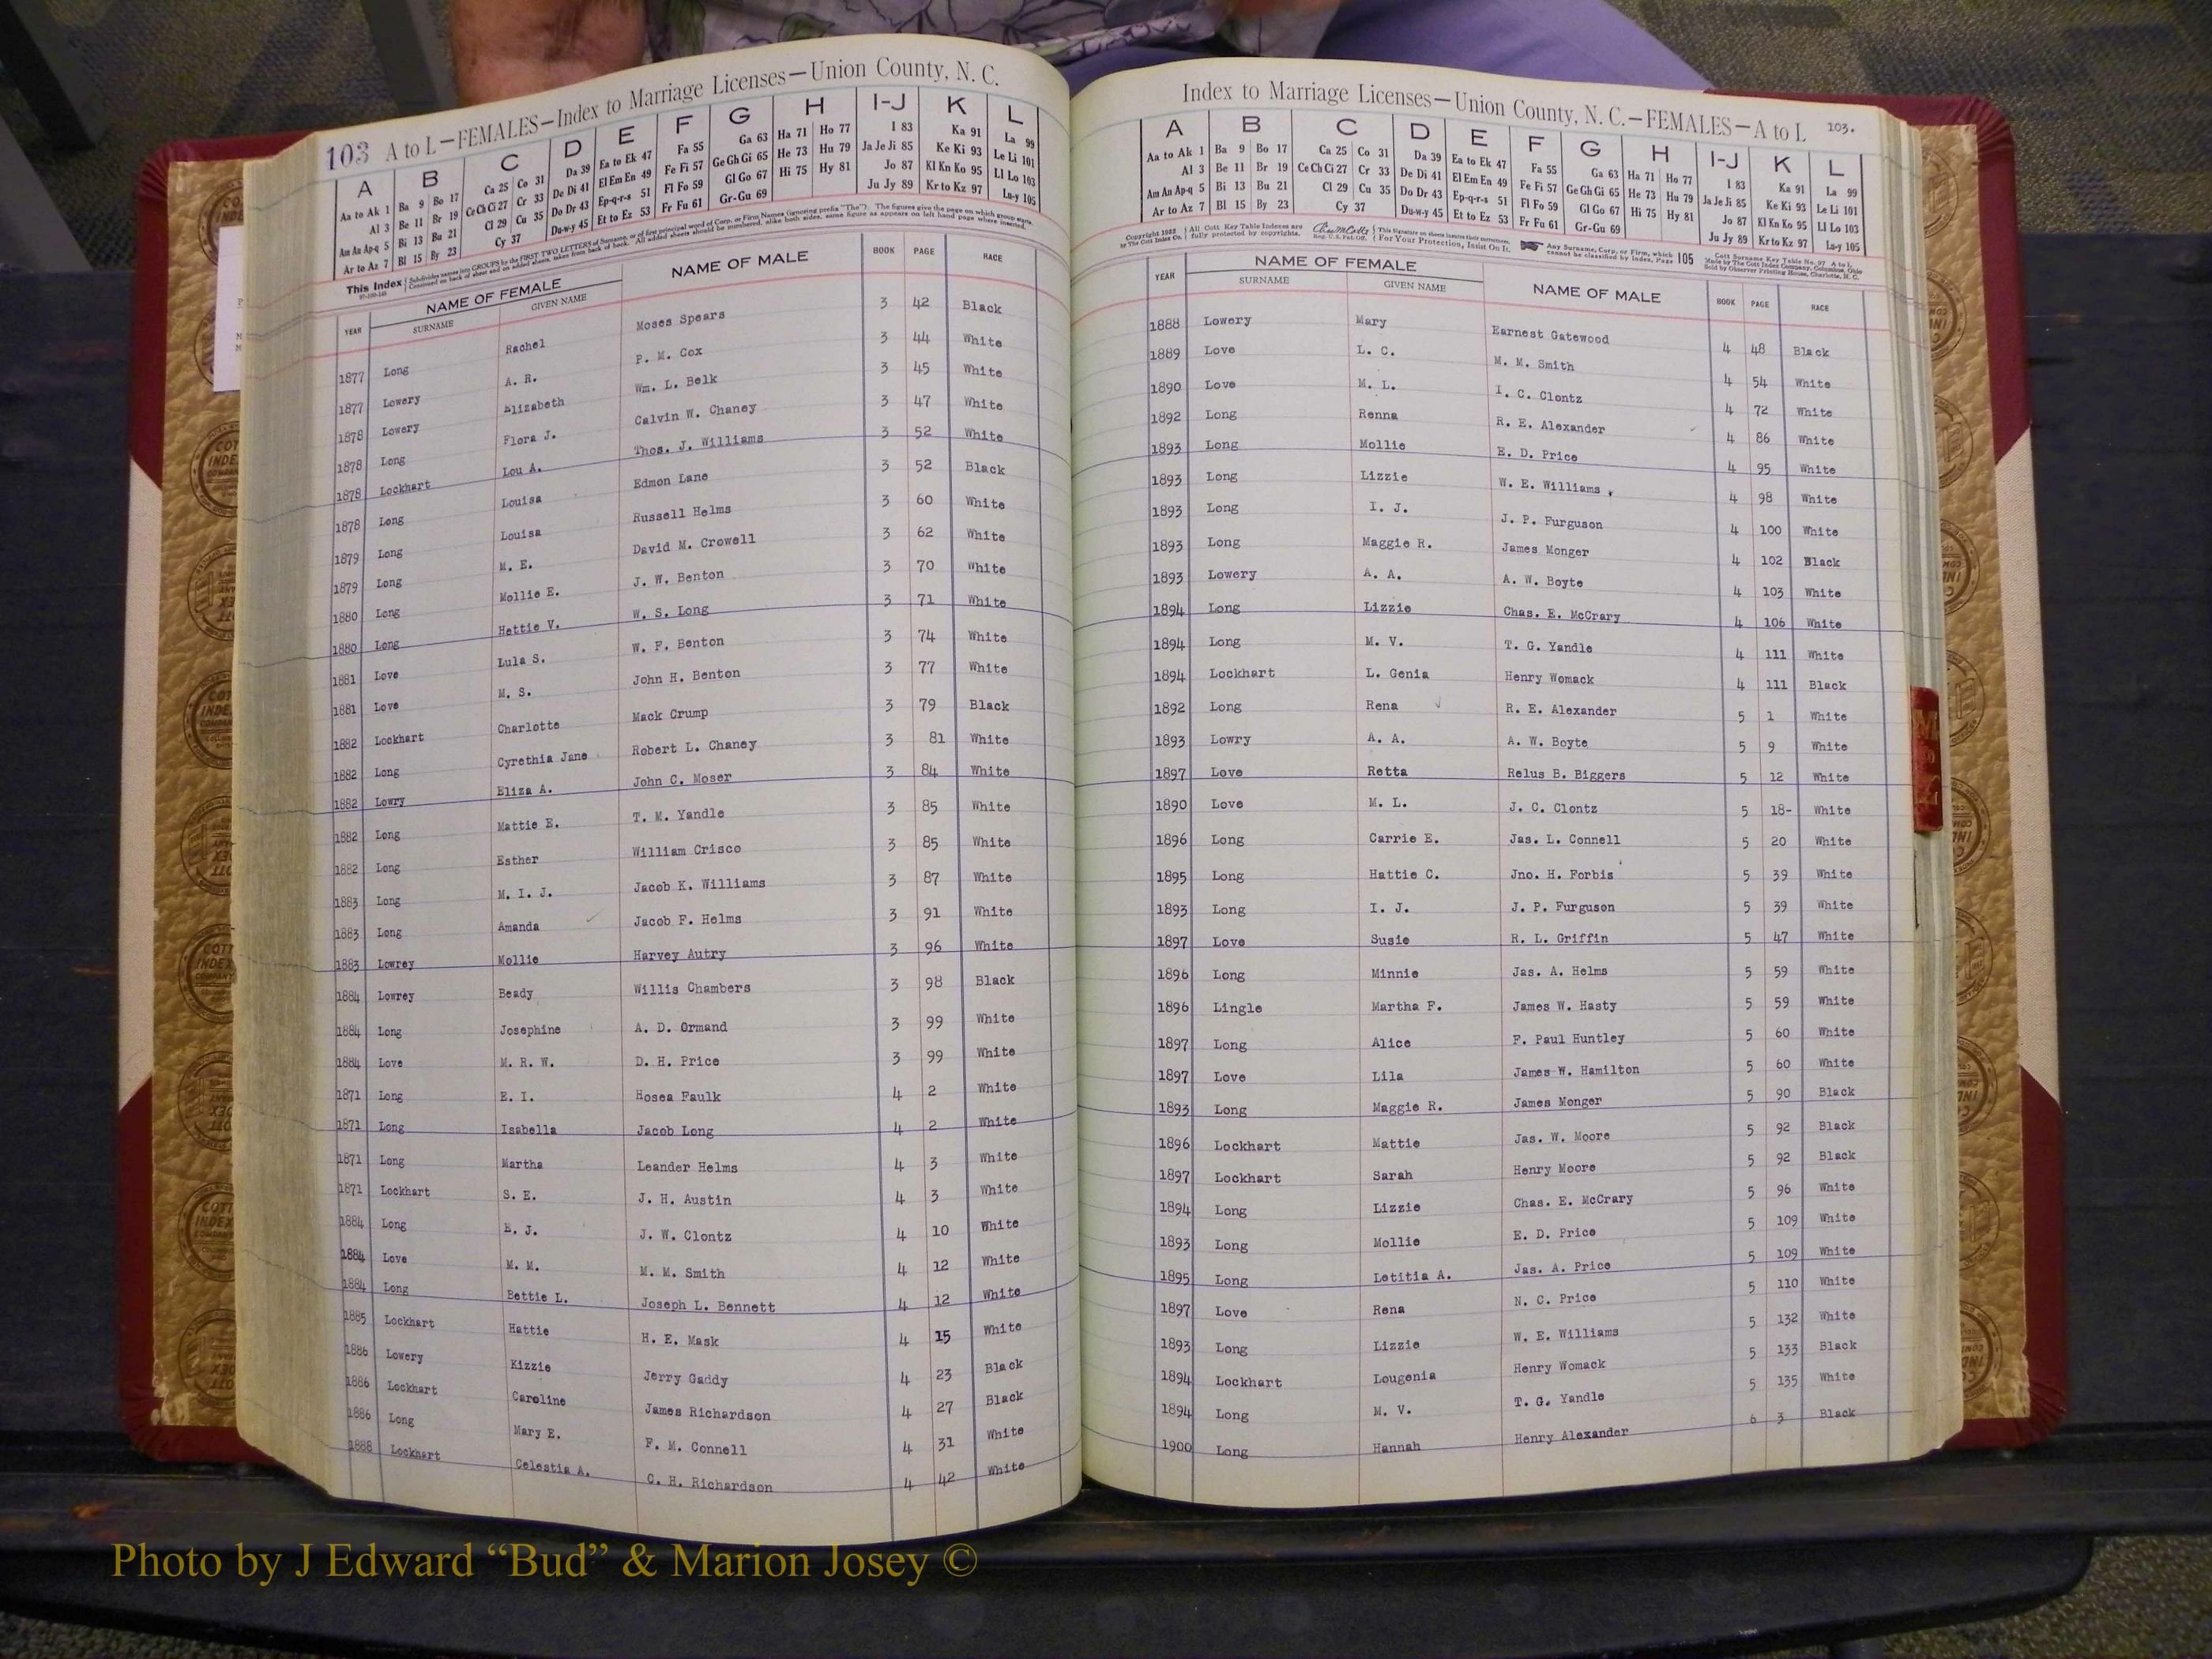 103 A to L—FEMALES—Index to Marriage Licenses—Union County, N. C.
A B C D E F G H I-J K L
Aa to Ak 1 Ba 9 Bo 17 Ca 25 Co 31 Da 39 Ea to Ek 47 Fa 55 Ga 63 Ha 71 Ho 77 I 83 Ka 91 La 99
Al 3 Be 11 Br 19 Ce Ch Ci 27 Cr 33 De Di 41 El Em En 49 Fe Fi 57 Ge Gh Gi 65 He 73 Hu 79 Ja Je Ji 85 Ke Ki 93 Le Li 101
Am An Ap-q 5 Bi 13 Bu 21 Cl 29 Cu 35 Do Dr 43 Ep-q-r-s 51 Fl Fo 59 Gl Go 67 Hi 75 Hy 81 Jo 87 Kl Kn Ko 95 Ll Lo 103
Ar to Az 7 Bl 15 By 23 Cy 37 Du-w-y 45 Et to Ez 53 Fr Fu 61 Gr-Gu 69 Ju Jy 89 Kr to Kz 97 Lu-y 105
This Index
YEAR NAME OF FEMALE SURNAME GIVEN NAME NAME OF MALE BOOK PAGE RACE
1877 Long Rachel Moses Spears 3 42 Black
1877 Lowery A. R. P. M. Cox 3 44 White
1878 Lowery Elizabeth Wm. L. Belk 3 45 White
1878 Long Flora J. Calvin W. Chaney 3 47 White
1878 Lockhart Lou A. Thos. J. Williams 3 52 White
1878 Long Louisa Edmon Lane 3 52 Black
1879 Long Louisa Russell Helms 3 60 White
1879 Long M. E. David M. Crowell 3 62 White
1880 Long Mollie E. J. W. Benton 3 70 White
1880 Long Hettie V. W. S. Long 3 71 White
1881 Love Lula S. W. F. Benton 3 74 White
1881 Love M. S. John H. Benton 3 77 White
1882 Lockhart Charlotte Mack Crump 3 79 Black
1882 Long Cyrethia Jane Robert L. Chaney 3 81 White
1882 Lowry Eliza A. John C. Moser 3 84 White
1882 Long Mattie E. T. M. Yandle 3 85 White
1882 Long Esther William Crisco 3 85 White
1883 Long M. I. J. Jacob K. Williams 3 87 White
1883 Long Amanda Jacob F. Helms 3 91 White
1883 Lowrey Mollie Harvey Autry 3 96 White
1884 Lowrey Beady Willis Chambers 3 98 Black
1884 Long Josephine A. D. Ormand 3 99 White
1884 Love M. R. W. D. H. Price 3 99 White
1871 Long E. I. Hosea Faulk 4 2 White
1871 Long Isabella Jacob Long 4 2 White
1871 Long Martha Leander Helms 4 3 White
1871 Lockhart S. E. J. H. Austin 4 3 White
1884 Long E. J. J. W. Clontz 4 10 White
1884 Love M. M. M. M. Smith 4 12 White
1884 Long Bettie L. Joseph L. Bennett 4 12 White
1885 Lockhart Hattie H. E. Mask 4 15 White
1886 Lowery Kizzie Jerry Gaddy 4 23 Black
1886 Lockhart Caroline James Richardson 4 27 Black
1886 Long Mary E. F. M. Connell 4 31 White
1888 Lockhart Celestia A. C. H. Richardson 4 42 White
Index to Marriage Licenses—Union County, N. C.—FEMALES—A to L 103.
A B C D E F G H I-J K L
Aa to Ak 1 Ba 9 Bo 17 Ca 25 Co 31 Da 39 Ea to Ek 47 Fa 55 Ga 63 Ha 71 Ho 77 I 83 Ka 91 La 99
Al 3 Be 11 Br 19 Ce Ch Ci 27 Cr 33 De Di 41 El Em En 49 Fe Fi 57 Ge Gh Gi 65 He 73 Hu 79 Ja Je Ji 85 Ke Ki 93 Le Li 101
Am An Ap-q 5 Bi 13 Bu 21 Cl 29 Cu 35 Do Dr 43 Ep-q-r-s 51 Fl Fo 59 Gl Go 67 Hi 75 Hy 81 Jo 87 Kl Kn Ko 95 Ll Lo 103
Ar to Az 7 Bl 15 By 23 Cy 37 Du-w-y 45 Et to Ez 53 Fr Fu 61 Gr-Gu 69 Ju Jy 89 Kr to Kz 97 Lu-y 105
All Cott Key Table Indexes are fully protected by copyrights. For Your Protection, Insist On It. Any Surname, Corp. or Firm, which cannot be classified by index, Page 105
YEAR NAME OF FEMALE SURNAME GIVEN NAME NAME OF MALE BOOK PAGE RACE
1888 Lowery Mary Earnest Gatewood 4 48 Black
1889 Love L. C. M. M. Smith 4 54 White
1890 Love M. L. I. C. Clontz 4 72 White
1892 Long Renna R. E. Alexander 4 86 White
1893 Long Mollie E. D. Price 4 95 White
1893 Long Lizzie W. E. Williams 4 98 White
1893 Long I. J. J. P. Furguson 4 100 White
1893 Long Maggie R. James Monger 4 102 Black
1893 Lowery A. A. A. W. Boyte 4 103 White
1894 Long Lizzie Chas. E. McCrary 4 106 White
1894 Long M. V. T. G. Yandle 4 111 White
1894 Lockhart L. Genia Henry Womack 4 111 Black
1892 Long Rena R. E. Alexander 5 1 White
1893 Lowry A. A. A. W. Boyte 5 9 White
1897 Love Retta Relus B. Biggers 5 12 White
1890 Love M. L. J. C. Clontz 5 18- White
1896 Long Carrie E. Jas. L. Connell 5 20 White
1895 Long Hattie C. Jno. H. Forbis 5 39 White
1893 Long I. J. J. P. Furguson 5 39 White
1897 Love Susie R. L. Griffin 5 47 White
1896 Long Minnie Jas. A. Helms 5 59 White
1896 Lingle Martha F. James W. Hasty 5 59 White
1897 Long Alice F. Paul Huntley 5 60 White
1897 Love Lila James W. Hamilton 5 60 White
1893 Long Maggie R. James Monger 5 90 Black
1896 Lockhart Mattie Jas. W. Moore 5 92 Black
1897 Lockhart Sarah Henry Moore 5 92 Black
1894 Long Lizzie Chas. E. McCrary 5 96 White
1893 Long Mollie E. D. Price 5 109 White
1895 Long Letitia A. Jas. A. Price 5 109 White
1897 Love Rena N. C. Price 5 110 White
1893 Long Lizzie W. E. Williams 5 132 White
1894 Lockhart Lougenia Henry Womack 5 133 Black
1894 Long M. V. T. G. Yandle 5 135 White
1900 Long Hannah Henry Alexander 6 3 Black
Photo by J Edward “Bud” & Marion Josey ©